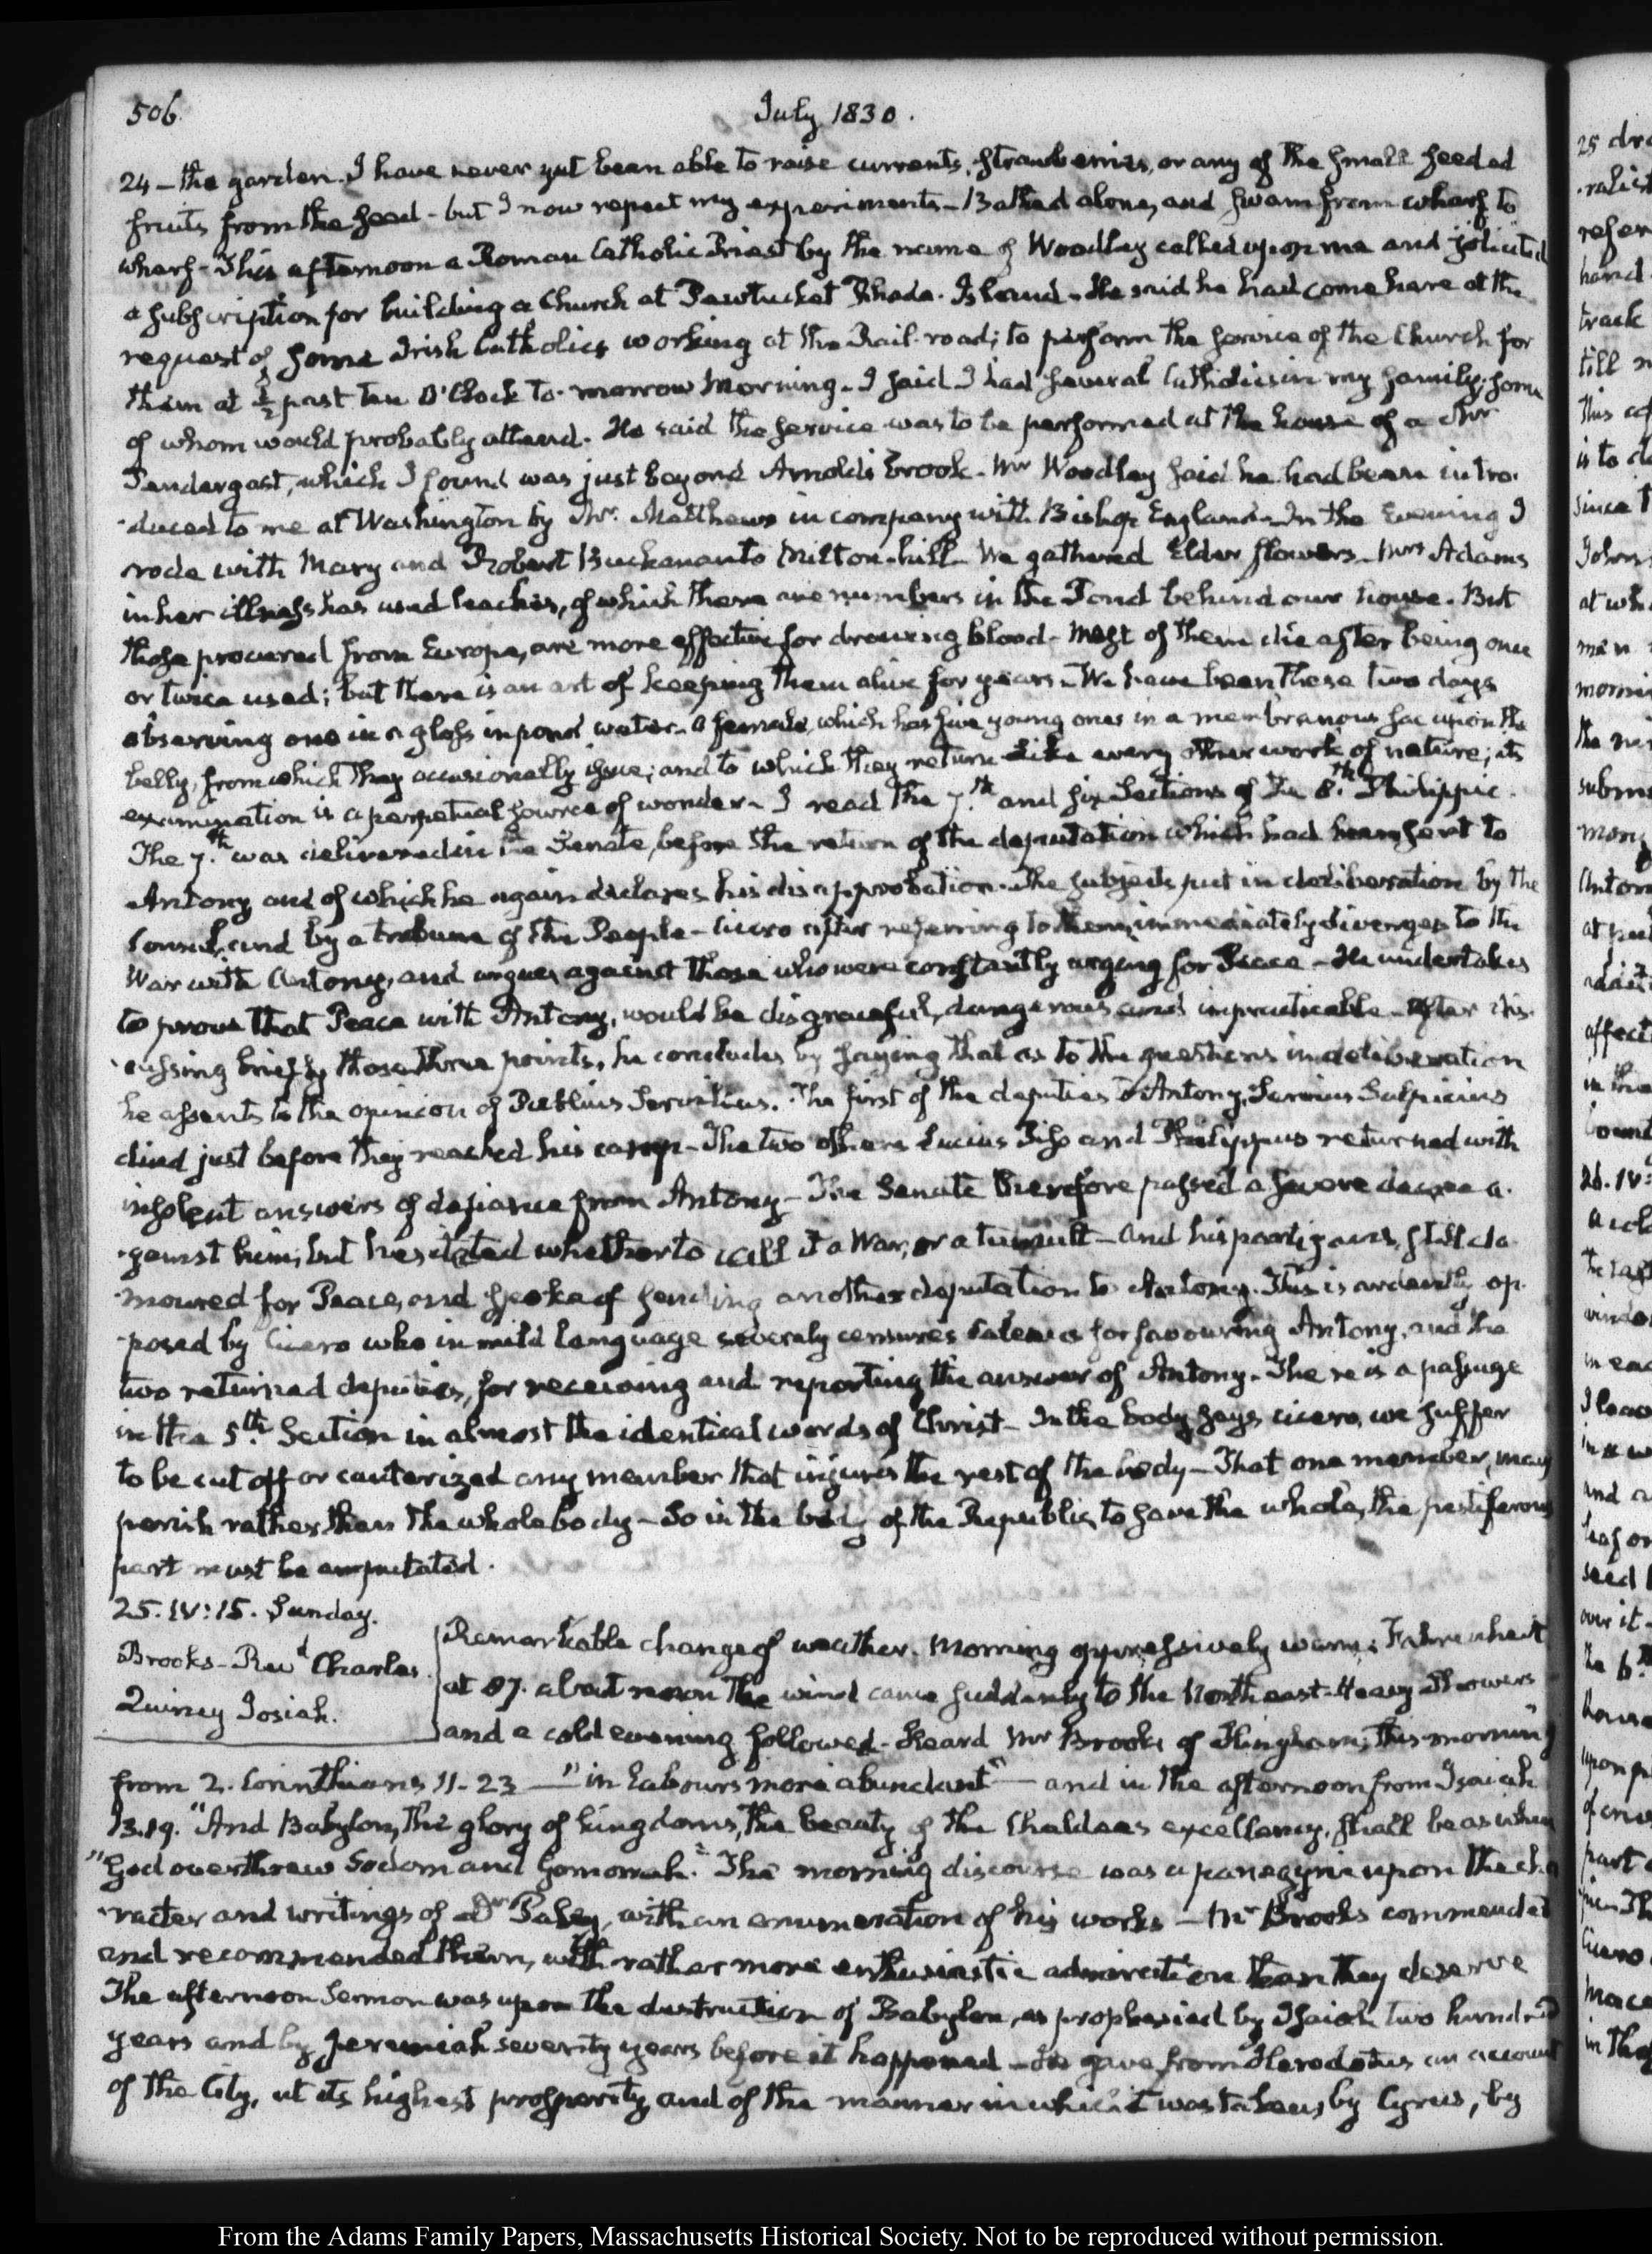 506.
July 1830.
24 – the garden. I have never yet been able to raise currants, strawberries, or any of the small seeded
fruits from the seed – but I now repeat my experiments – Bathed alone, and swam from wharf to
wharf – This afternoon a Roman Catholic Priest by the name of Woodley called upon me and solicited
a subscription for building a Church at Pawtucket Rhode-Island – He said he had come here at the
request of some Irish Catholics working at the Rail-road; to perform the service of the Church for
them at ½ past ten O'Clock to-morrow Morning – I said I had several Catholics in my family, some
of whom would probably attend. He said the service was to be performed at the house of a Mr
Pendergast, which I found was just beyond Arnold's Brook – Mr Woodley said he had been intro-
-duced to me at Washington by Mr. Matthews in company with Bishop England – In the Evening I
rode with Mary and Robert Buchanan to Milton-hill – We gathered Elder flowers – Mrs Adams
in her illness has used leeches, of which there are numbers in the Pond behind our house. But
those procured from Europe, are more effective for drawing blood – Most of them die after being once
or twice used; but there is an art of keeping them alive for years – We have been these two days
observing one in a glass in pond water – a female, which has five young ones in a membranous sac upon the
belly, from which they occasionally issue; and to which they return like every other work of nature; its
examination is a perpetual source of wonder – I read the 7.th and six Sections of the 8.th Philippic.
The 7.th was delivered in the Senate, before the return of the deputation which had been sent to
Antony and of which he again declares his disapprobation. The subjects put in deliberation by the
Consul, and by a tribune of the People – Cicero after referring to them, immediately diverges to the
War with Antony, and argues against those who were constantly urging for Peace – He undertakes
to prove that Peace with Antony, would be disgraceful, dangerous and impracticable – After dis-
-cussing briefly those three points, he concludes by saying that as to the questions in deliberation
he assents to the opinion of Publius Servilius. The first of the deputies to Antony, Servius Sulpicius
died just before they reached his camp – The two others Lucius Piso and Philippus returned with
insolent answers of defiance from Antony – The Senate therefore passed a severe decree a-
-gainst him, but hesitated whether to call it a War, or a tumult – And his partizans, still cla-
-moured for Peace, and spoke of sending another deputation to Antony. This is ardently op-
-posed by Cicero who in mild language severely censures Calenus for favouring Antony, and the
two returned deputies, for receiving and reporting the answer of Antony. There is a passage
in the 5.th Section in almost the identical words of Christ – In the body, says Cicero, we suffer
to be cut off or cauterized any member that injures the rest of the body – That one member, may
perish rather than the whole body – So in the body of the Republic, to save the whole, the pestiferous
part must be amputated.
25. IV:15. Sunday.
Brooks – Revd Charles.
Quincy Josiah.
Remarkable change of weather. Morning oppressively warm; Fahrenheit
at 87. about noon the wind came suddenly to the North east – Heavy Showers
and a cold evening followed – Heard Mr Brooks of Hingham; this morning
from 2. Corinthians 11-23 – "in labours more abundant" – and in the afternoon from Isaiah
13.19. "And Babylon, the glory of kingdoms, the beauty of the Chaldees excellency, shall be as when
"God overthrew Sodom and Gomorrah." The morning discourse was a panegyric upon the cha
-racter and writings of Dr Paley, with an enumeration of his works – Mr Brooks commended
and recommended them, with rather more enthusiastic admiration than they deserve
The afternoon Sermon was upon the destruction of Babylon, as prophesied by Isaiah two hundred
years and by Jeremiah seventy years before it happened – He gave from Herodotus an account
of the City, at its highest prosperity and of the manner in which it was taken by Cyrus, by
From the Adams Family Papers, Massachusetts Historical Society. Not to be reproduced without permission.